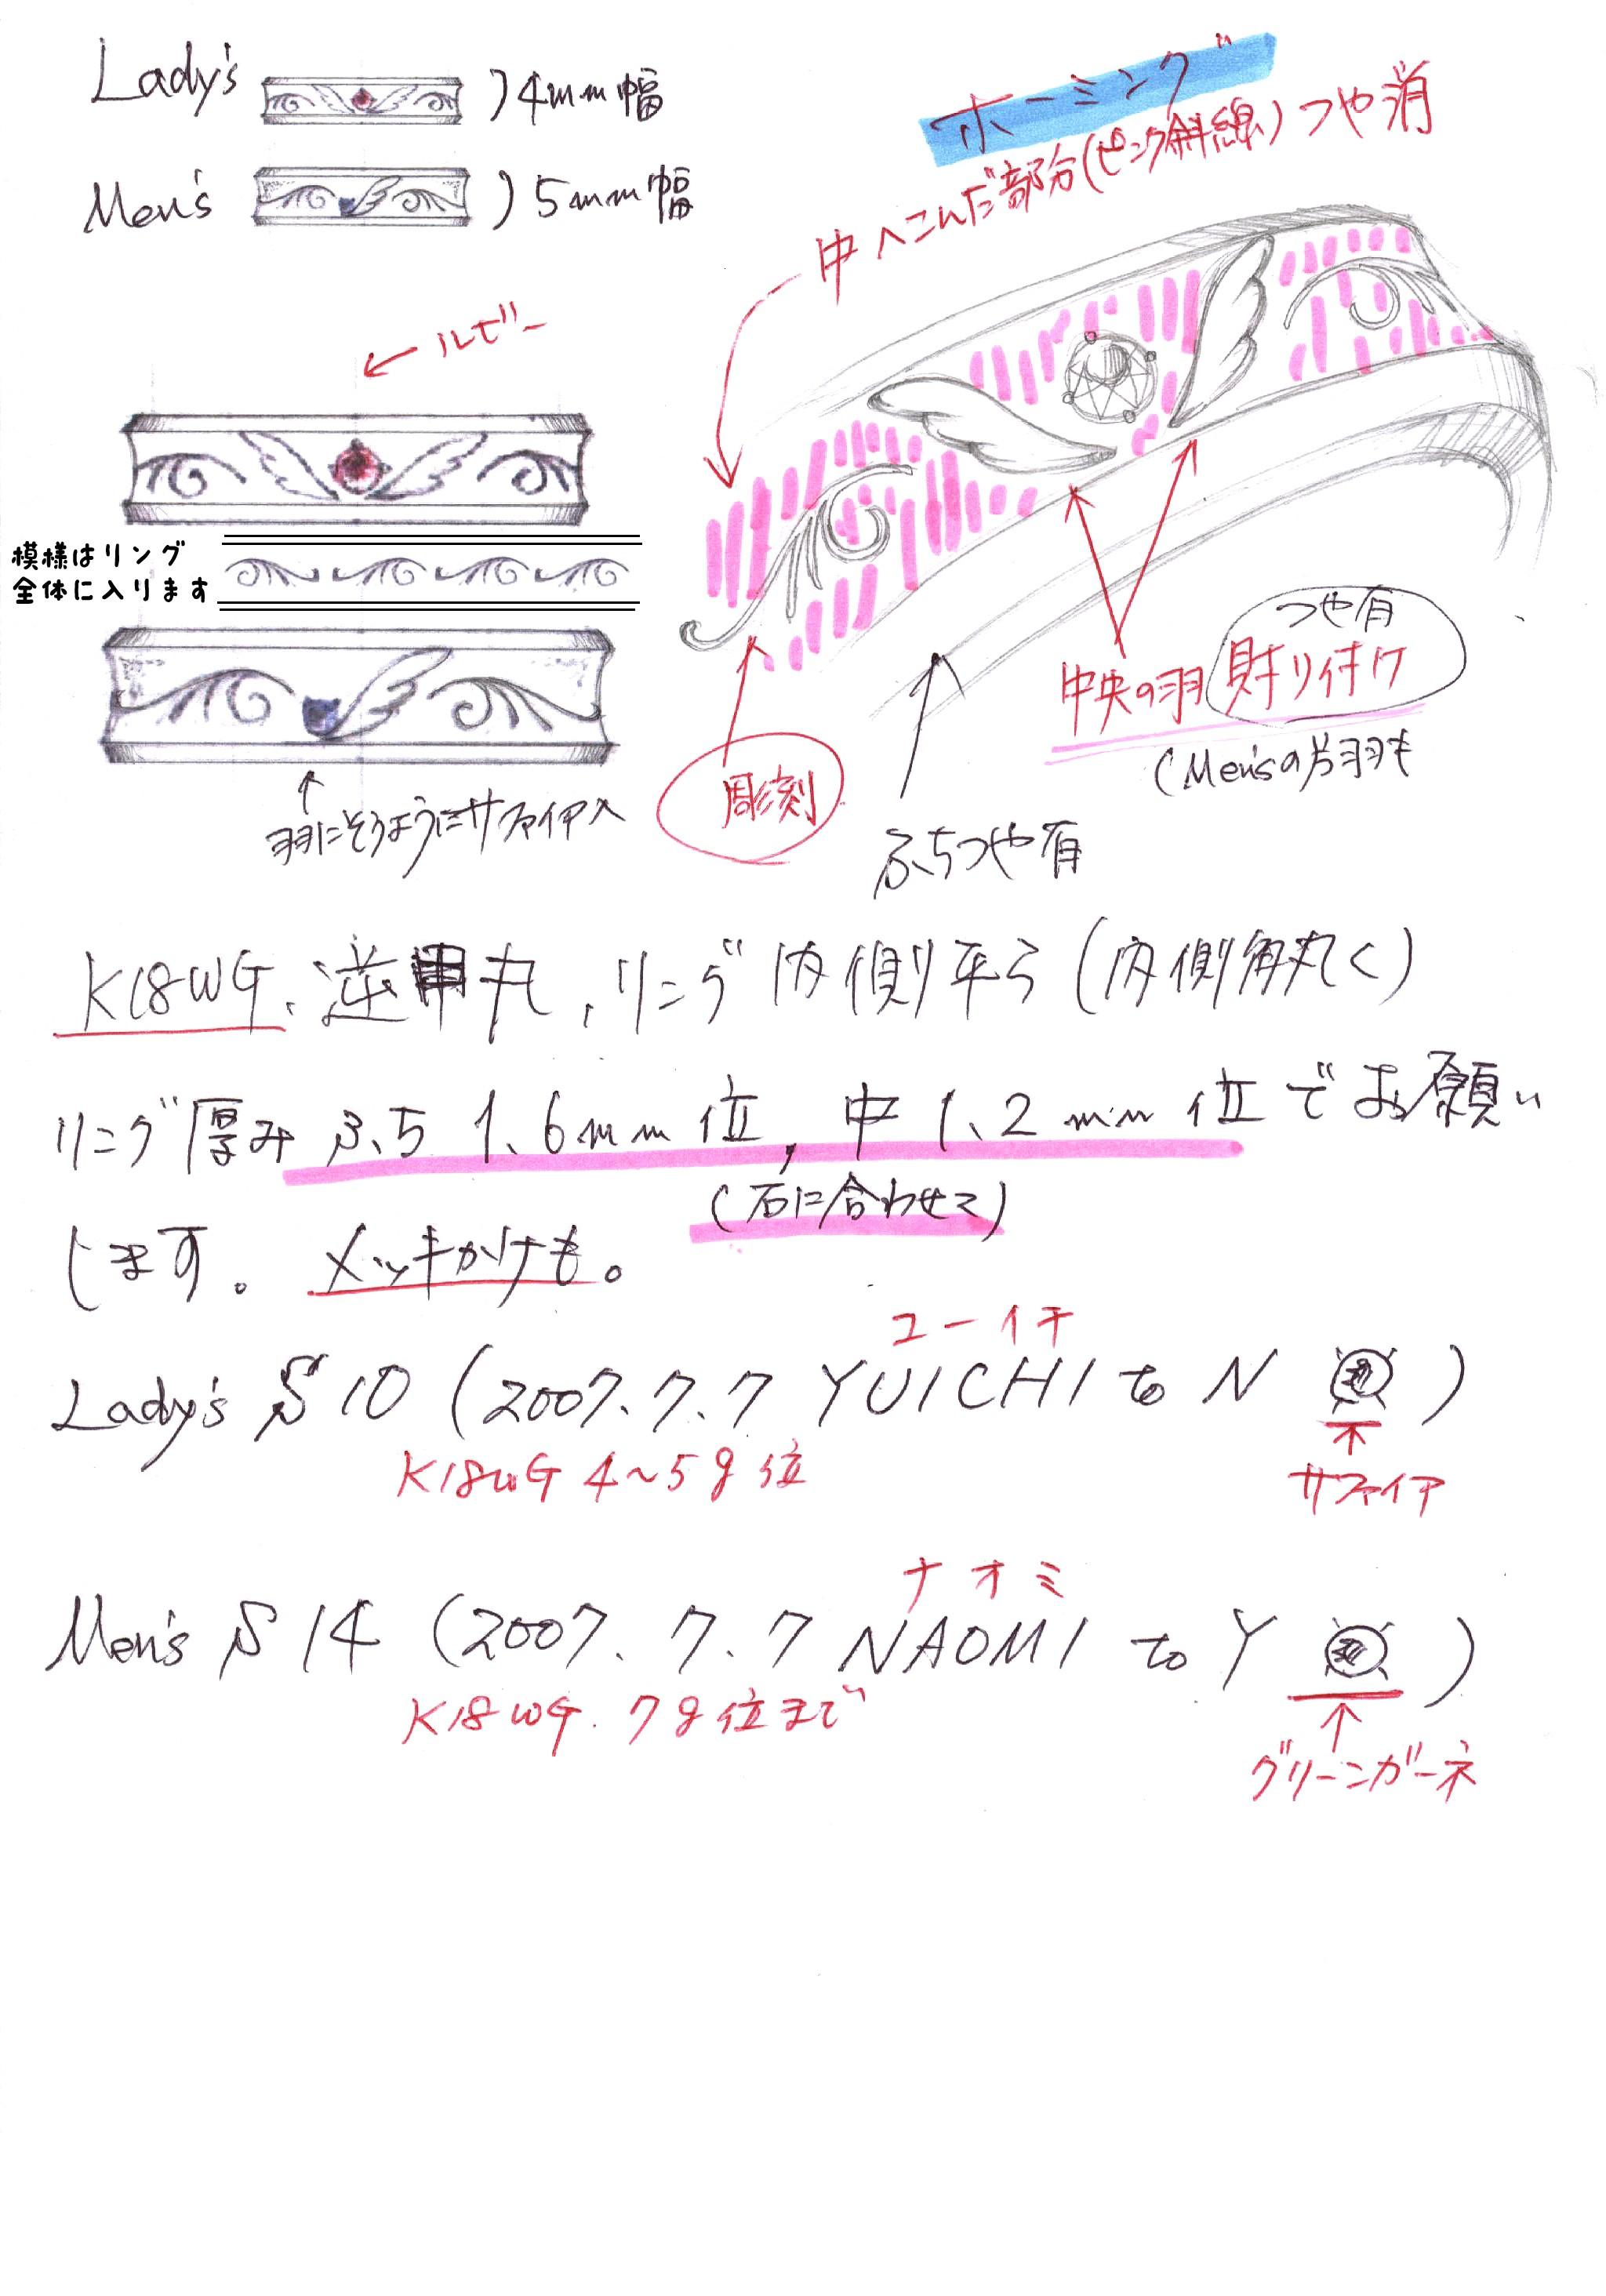 Lady's )4mm幅
Men's )5mm幅
ホーミング
中へこんだ部分(ピンク斜線)つや消
←ルビー
模様はリング
全体に入ります
羽にそうようにサファイア入
彫刻
ふちつや有
つや有
中央の羽 貼り付け
(Men'sの片羽も
K18WG、逆甲丸、リング内側平ら(内側角丸く)
リング厚み ふち 1、6mm 位, 中 1、2mm 位でお願い
(石に合わせて)
します。 メッキかけも。
ユーイチ
Lady's S10 (2007、7、7 YUICHI to N )
K18WG 4~5g位
サファイア
ナオミ
Men's S14 (2007、7、7 NAOMI to Y )
K18WG. 7g位まで
グリーンガーネ